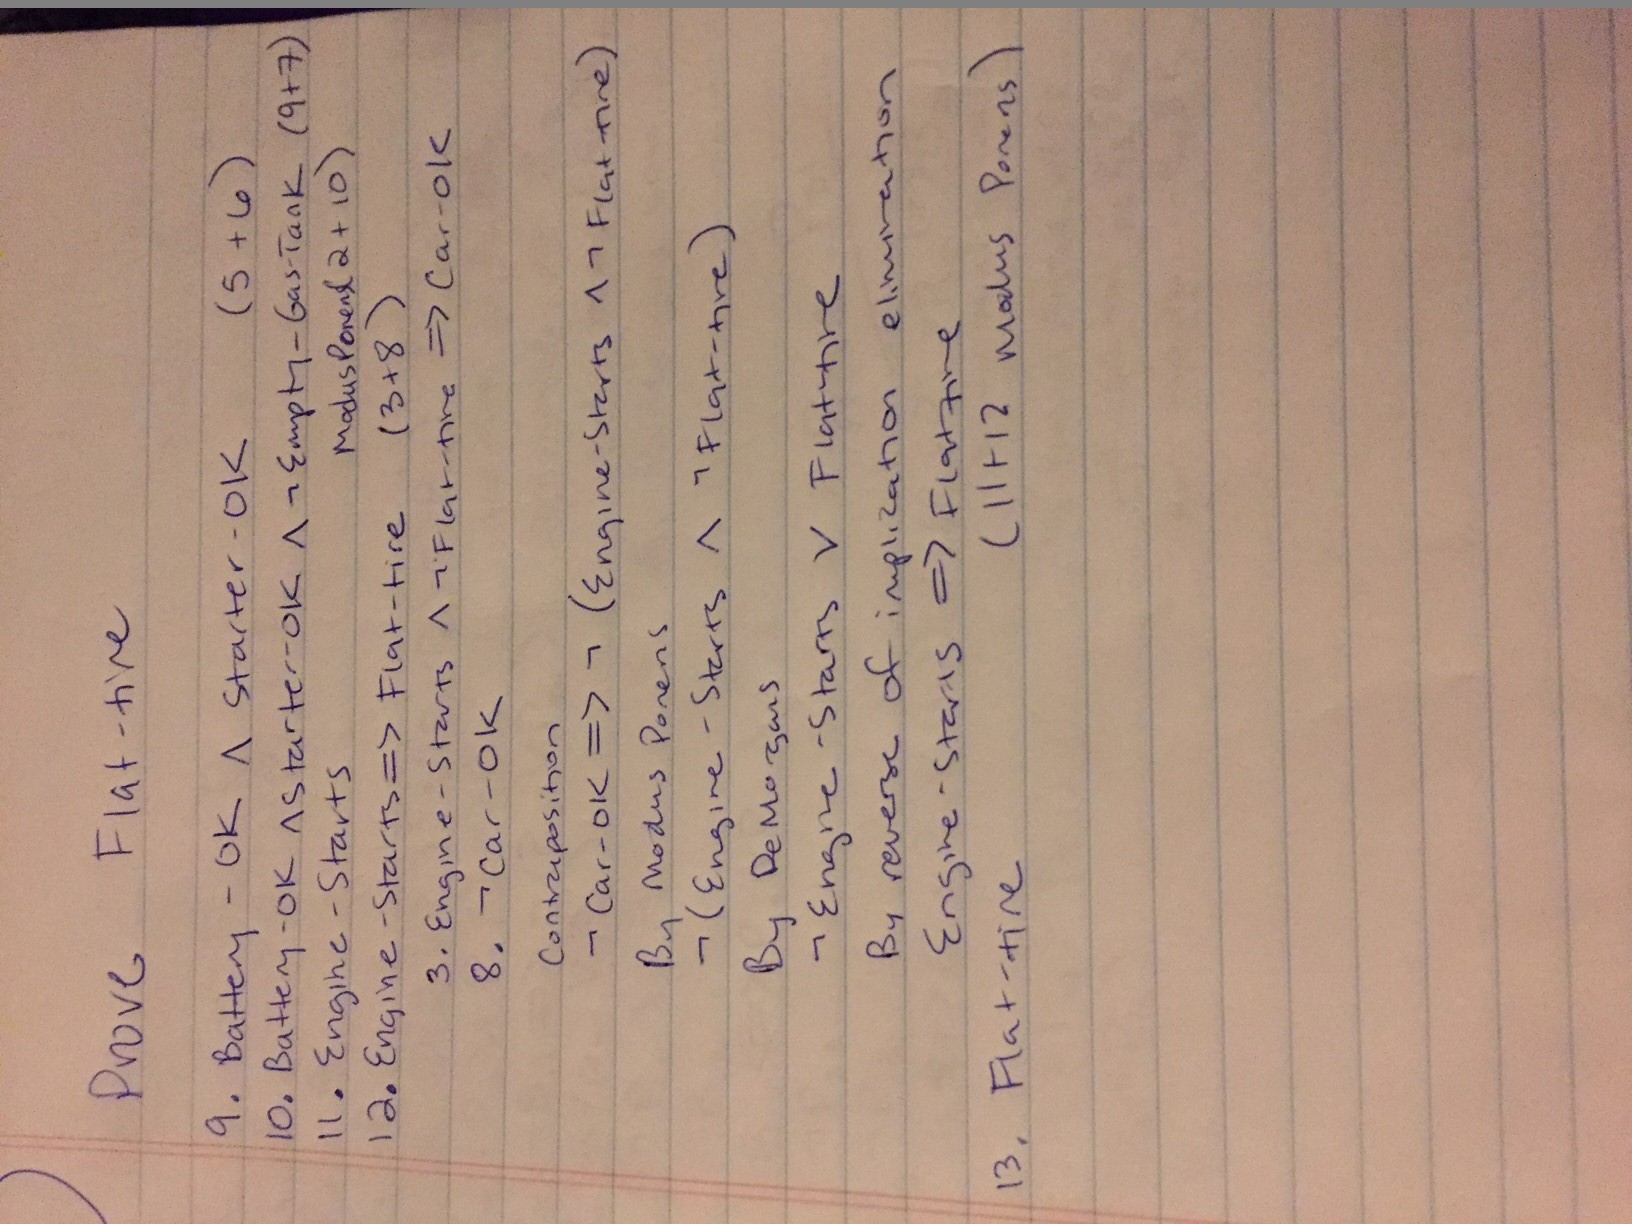 Prove Flat-tire
9. Battery-OK ∧ Starter-OK (5+6)
10. Battery-OK ∧ Starter-OK ∧ ¬Empty-Gas-Tank (9+7)
11. Engine-Starts Modus Ponens 2+10)
12. Engine-Starts => Flat-tire (3+8)
3. Engine-Starts ∧ ¬Flat-tire => Car-OK
8. ¬Car-OK
Contraposition
¬Car-OK => ¬(Engine-Starts ∧ ¬Flat-tire)
By Modus Ponens
¬(Engine-Starts ∧ ¬Flat-tire)
By DeMorgans
¬Engine-Starts ∨ Flat-tire
By reverse of implization elimination
Engine-Starts => Flat-tire
13. Flat-tire (11+12 modus Ponens)